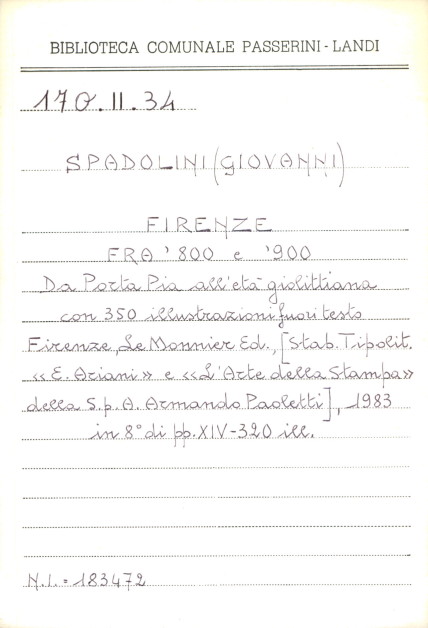 BIBLIOTECA COMUNALE PASSERINI-LANDI
170.II.34
SPADOLINI (GIOVANNI)
FIRENZE
FRA '800 e '900
Da Porta Pia all'età giolittiana
con 350 illustrazioni fuori testo
Firenze, Le Monnier Ed., [Stab. Tipolit.
«E. Ariani» e «L'Arte della Stampa»
della S.p.A. Armando Paoletti], 1983
in 8° di pp. XIV-320 ill.
N.I. = 183472